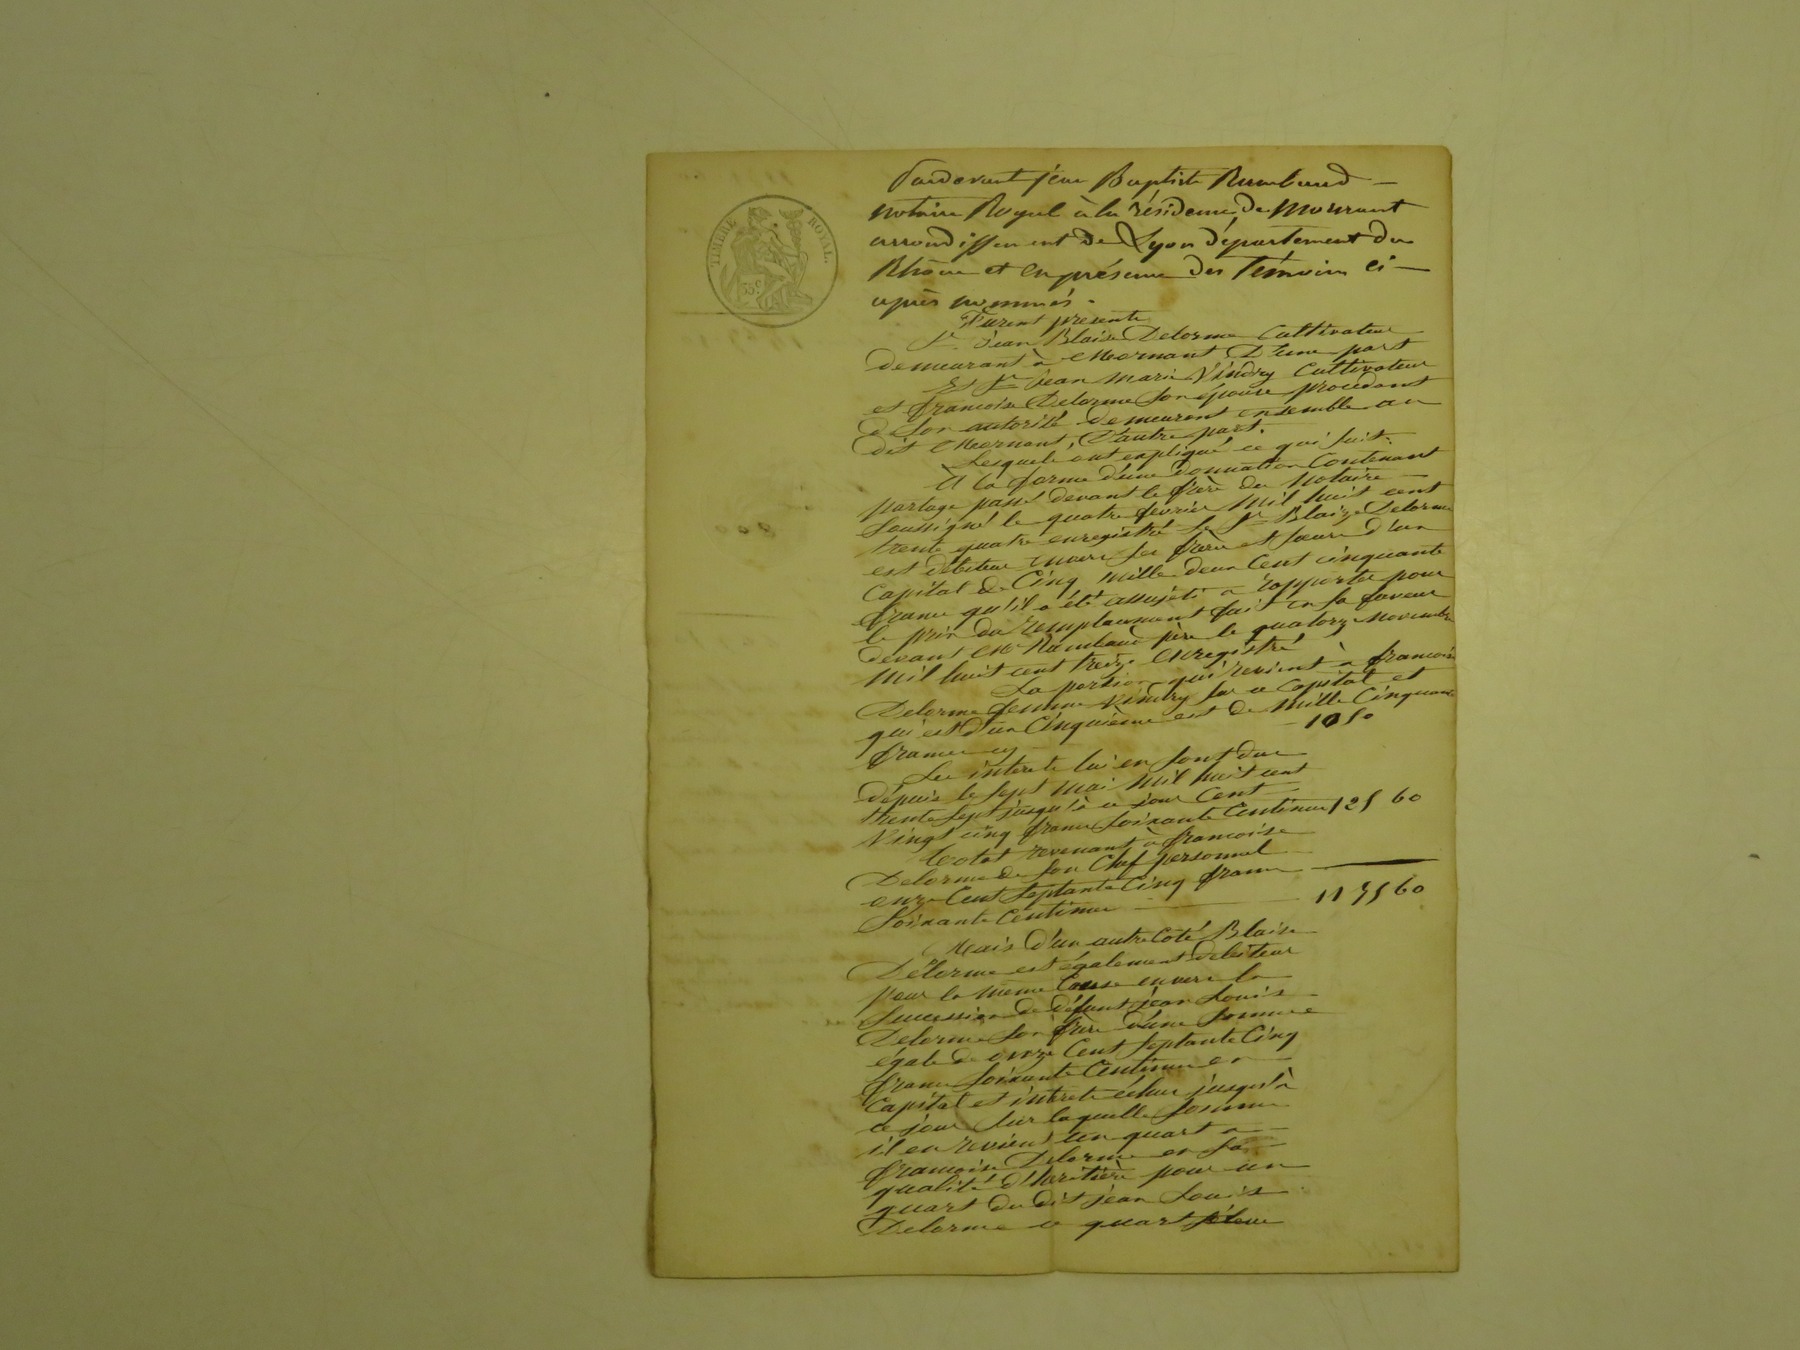 TIMBRE ROYAL.
35c
Pardevant jean Baptiste Rambaud
notaire Royal à la résidence de Mornant
arrondissement de Lyon département du
Rhône et en présence des Témoins ci-
après nommés.
Furent présents
Sr. Jean Blaise Delorme Cultivateur
demeurant à Mornant D'une part
Et Sr. Jean Marie Vindry Cultivateur
et françoise Delorme son épouse procédant
de son autorité demeurant ensemble au
dit Mornant, D'autre part.
Lesquels ont expliqué ce qui suit:
A la forme d'une donnation Contenant
partage passé devant le père du Notaire
soussigné le quatre fevrier Mil huit cent
trente quatre enregistré le Sr. Blaize Delorme
est débiteur envers ses frère et soeurs d'un
Capital de Cinq mille deux Cent cinquante
francs qu'il a été assujéti a rapporter pour
le prix du remplacement fait en sa faveur
devant Me Rambaud père le quatorze Novembre
Mil huit cent treize Enregistré
La portion qui revient à francoise
Delorme femme Vindry sur ce Capital et
qui est d'un Cinquième est de Mille Cinquante
francs cy 1050
Les intérêts lui en sont dus
depuis le sept Mai Mil huit cent
trente sept jusqu'à ce jour Cent
Vingt cinq francs soixante Centimes 125 60
Total revenant à francoise
Delorme de son Chef personnel
onze Cent septante Cinq francs
soixante Centimes 1175 60
Mais d'un autre Coté Blaise
Delorme est également débiteur
pour la même Cause envers la
Succession de défunt jean Louis
Delorme son frère d'une somme
égale de onze Cent septante Cinq
francs soixante Centimes en
Capital et intérêts échus jusqu'à
ce jour sur laquelle somme
il en revient un quart a
françoise Delorme en sa
qualité d'héritière pour un
quart du dit jean Louis
Delorme ce quart